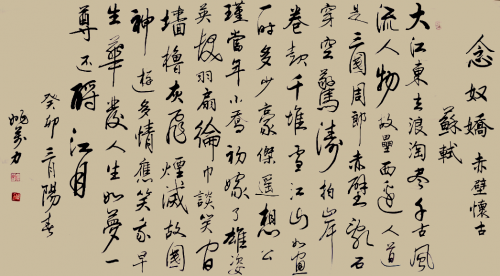 念奴嬌 赤壁懷古
蘇軾
大江東去浪淘尽千古風
流人物故壘西邊人道
是三國周郎赤壁亂石
穿空驚濤拍岸
卷起千堆雪江山如畫
一時多少豪傑遥想公
瑾當年小喬初嫁了雄姿
英發羽扇綸巾談笑間
墻櫓灰飛煙滅故國
神遊多情應笑我早
生華发人生如夢一
尊还酹江月
癸卯三月陽春
力